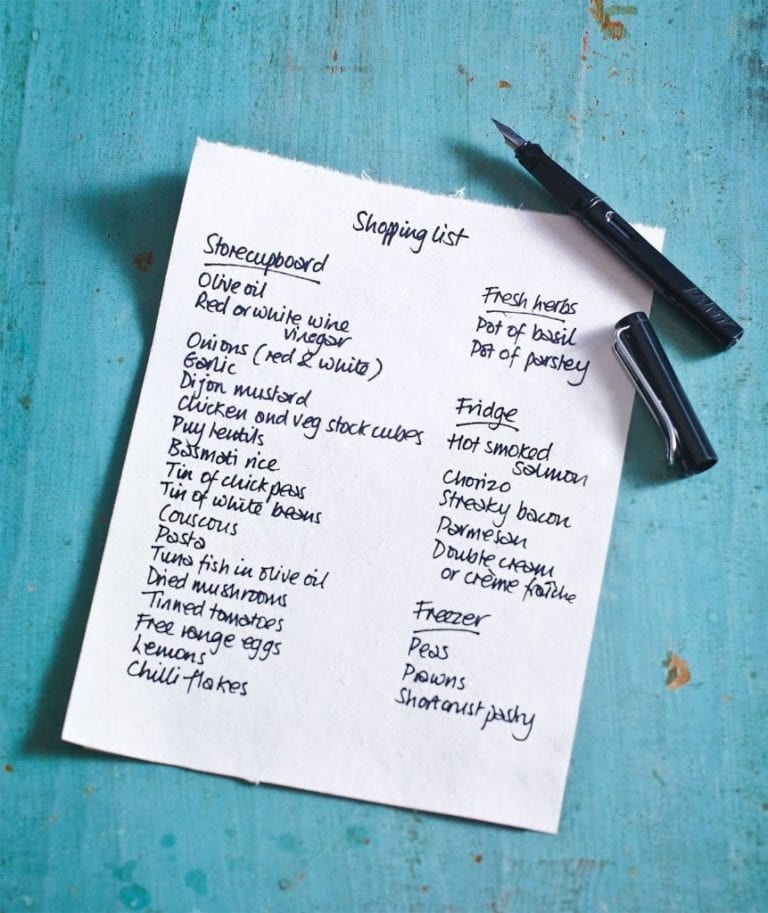 Shopping list
Storecupboard
Olive oil
Red or white wine
vinegar
Onions (red & white)
Garlic
Dijon mustard
Chicken and veg stock cubes
Puy lentils
Basmati rice
Tin of chick peas
Tin of white beans
Couscous
Pasta
Tuna fish in olive oil
Dried mushrooms
Tinned tomatoes
Free range eggs
Lemons
Chilli flakes
Fresh herbs
Pot of basil
Pot of parsley
Fridge
Hot smoked
Salmon
Chorizo
Streaky bacon
Parmesan
Double cream
or crème fraîche
Freezer
Peas
Prawns
Shortcrust pastry